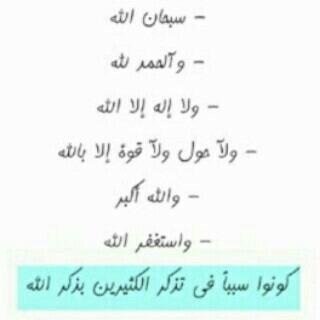 - سبحان الله
- وآلحمد لله
- ولا إله إلا الله
- ولآ حول ولآ قوة إلا بالله
- والله أكبر
- واستغفر الله
كونوا سبباً فى تذكر الكثيرين بذكر الله